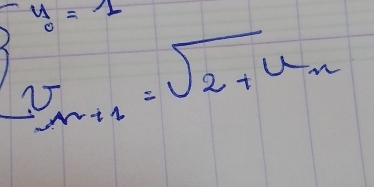 u₀ = 1
Uₙ₊₁ = √2 + uₙ